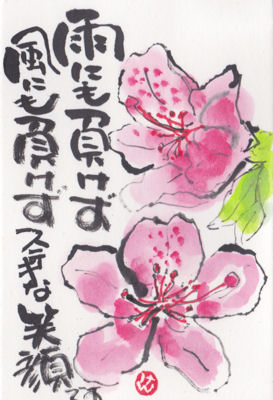 雨にも負けず
風にも負けず
ステキな笑顔
です